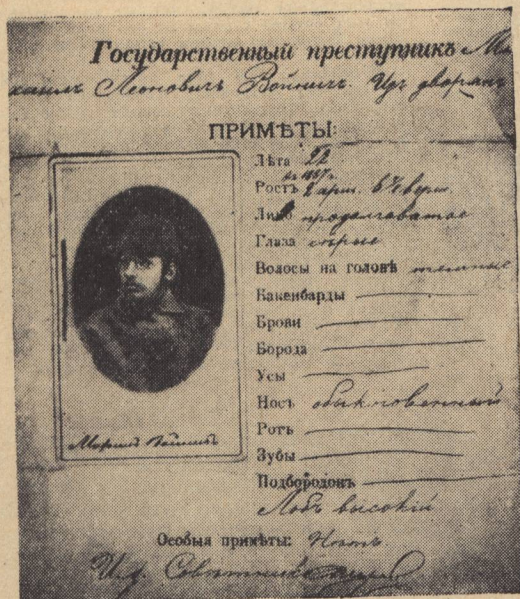 Государственный преступникъ Ми
хаилъ Леоновичъ Войничъ. Изъ дворянъ
ПРИМѢТЫ:
Лѣта 22
въ 1887 г.
Ростъ 2 арш. 6 7/8 верш.
Лицо продолговатое
Глаза сѣрые
Волосы на головѣ темные
Бакенбарды
Брови
Борода
Усы
Носъ обыкновенный
Ротъ
Зубы
Подбородокъ
Лобъ высокій
Особыя примѣты:
Войничъ